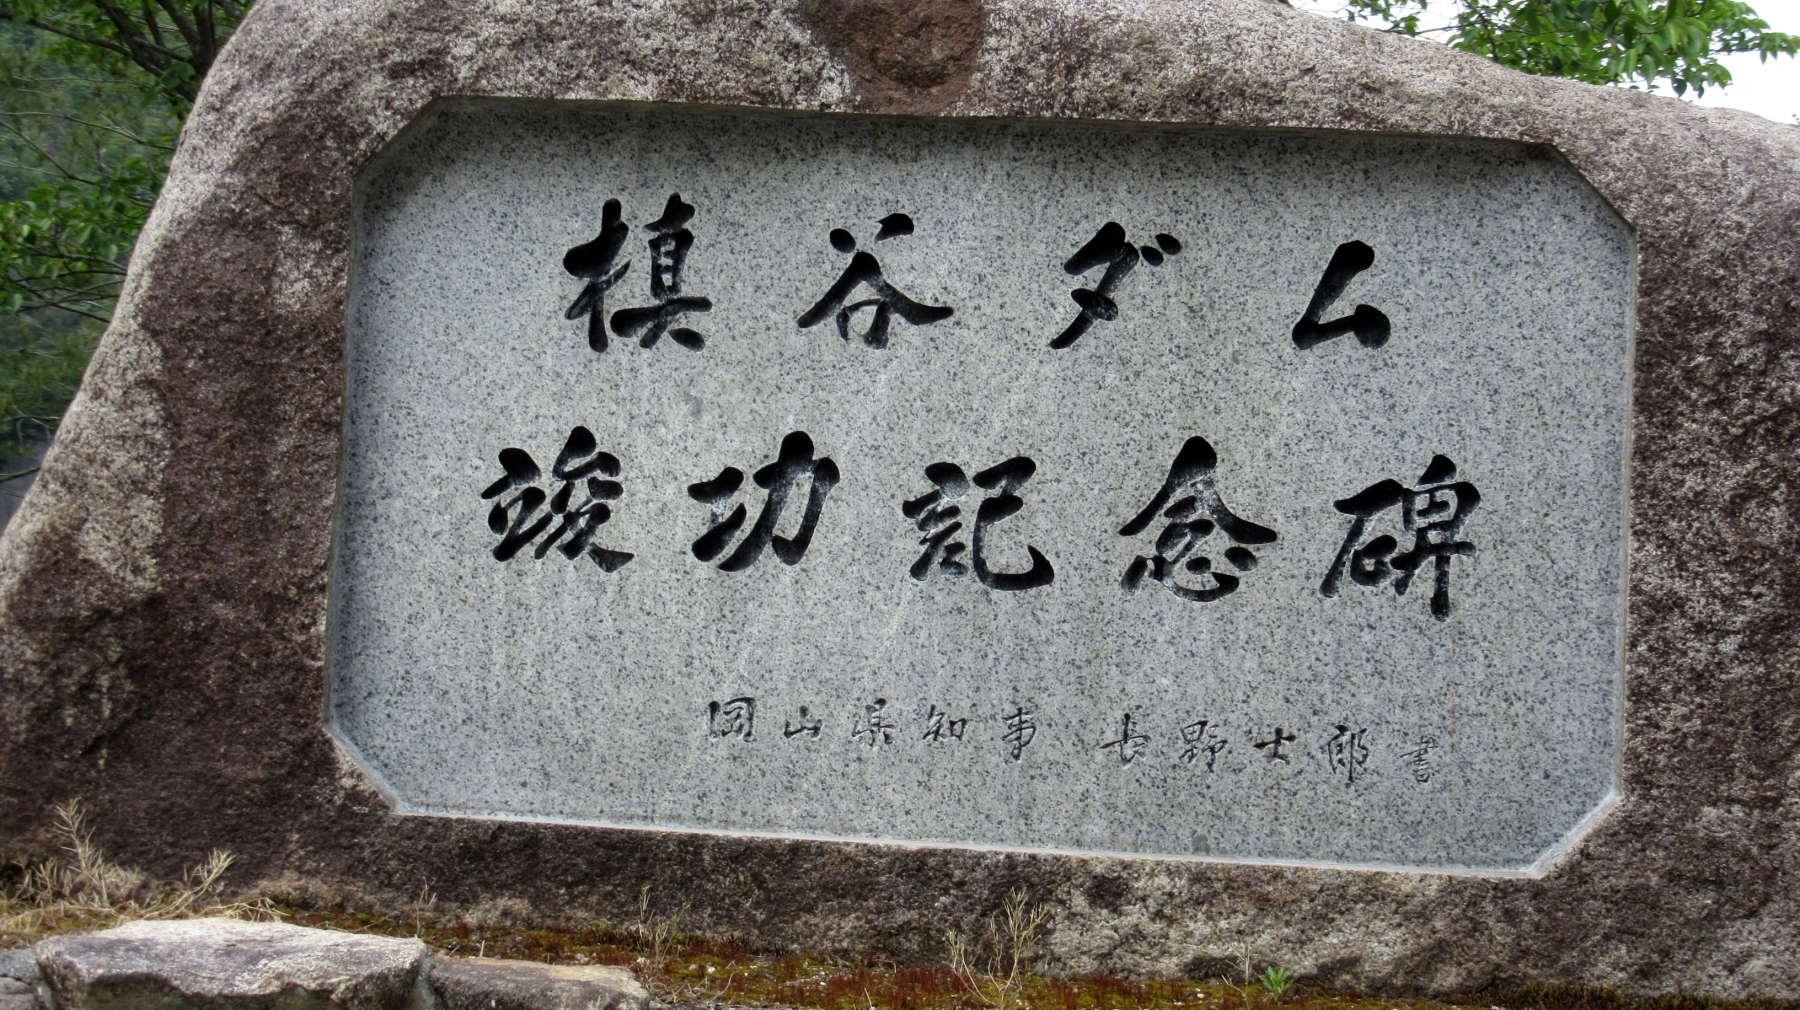 槙谷ダム
竣功記念碑
岡山県知事 長野士郎 書